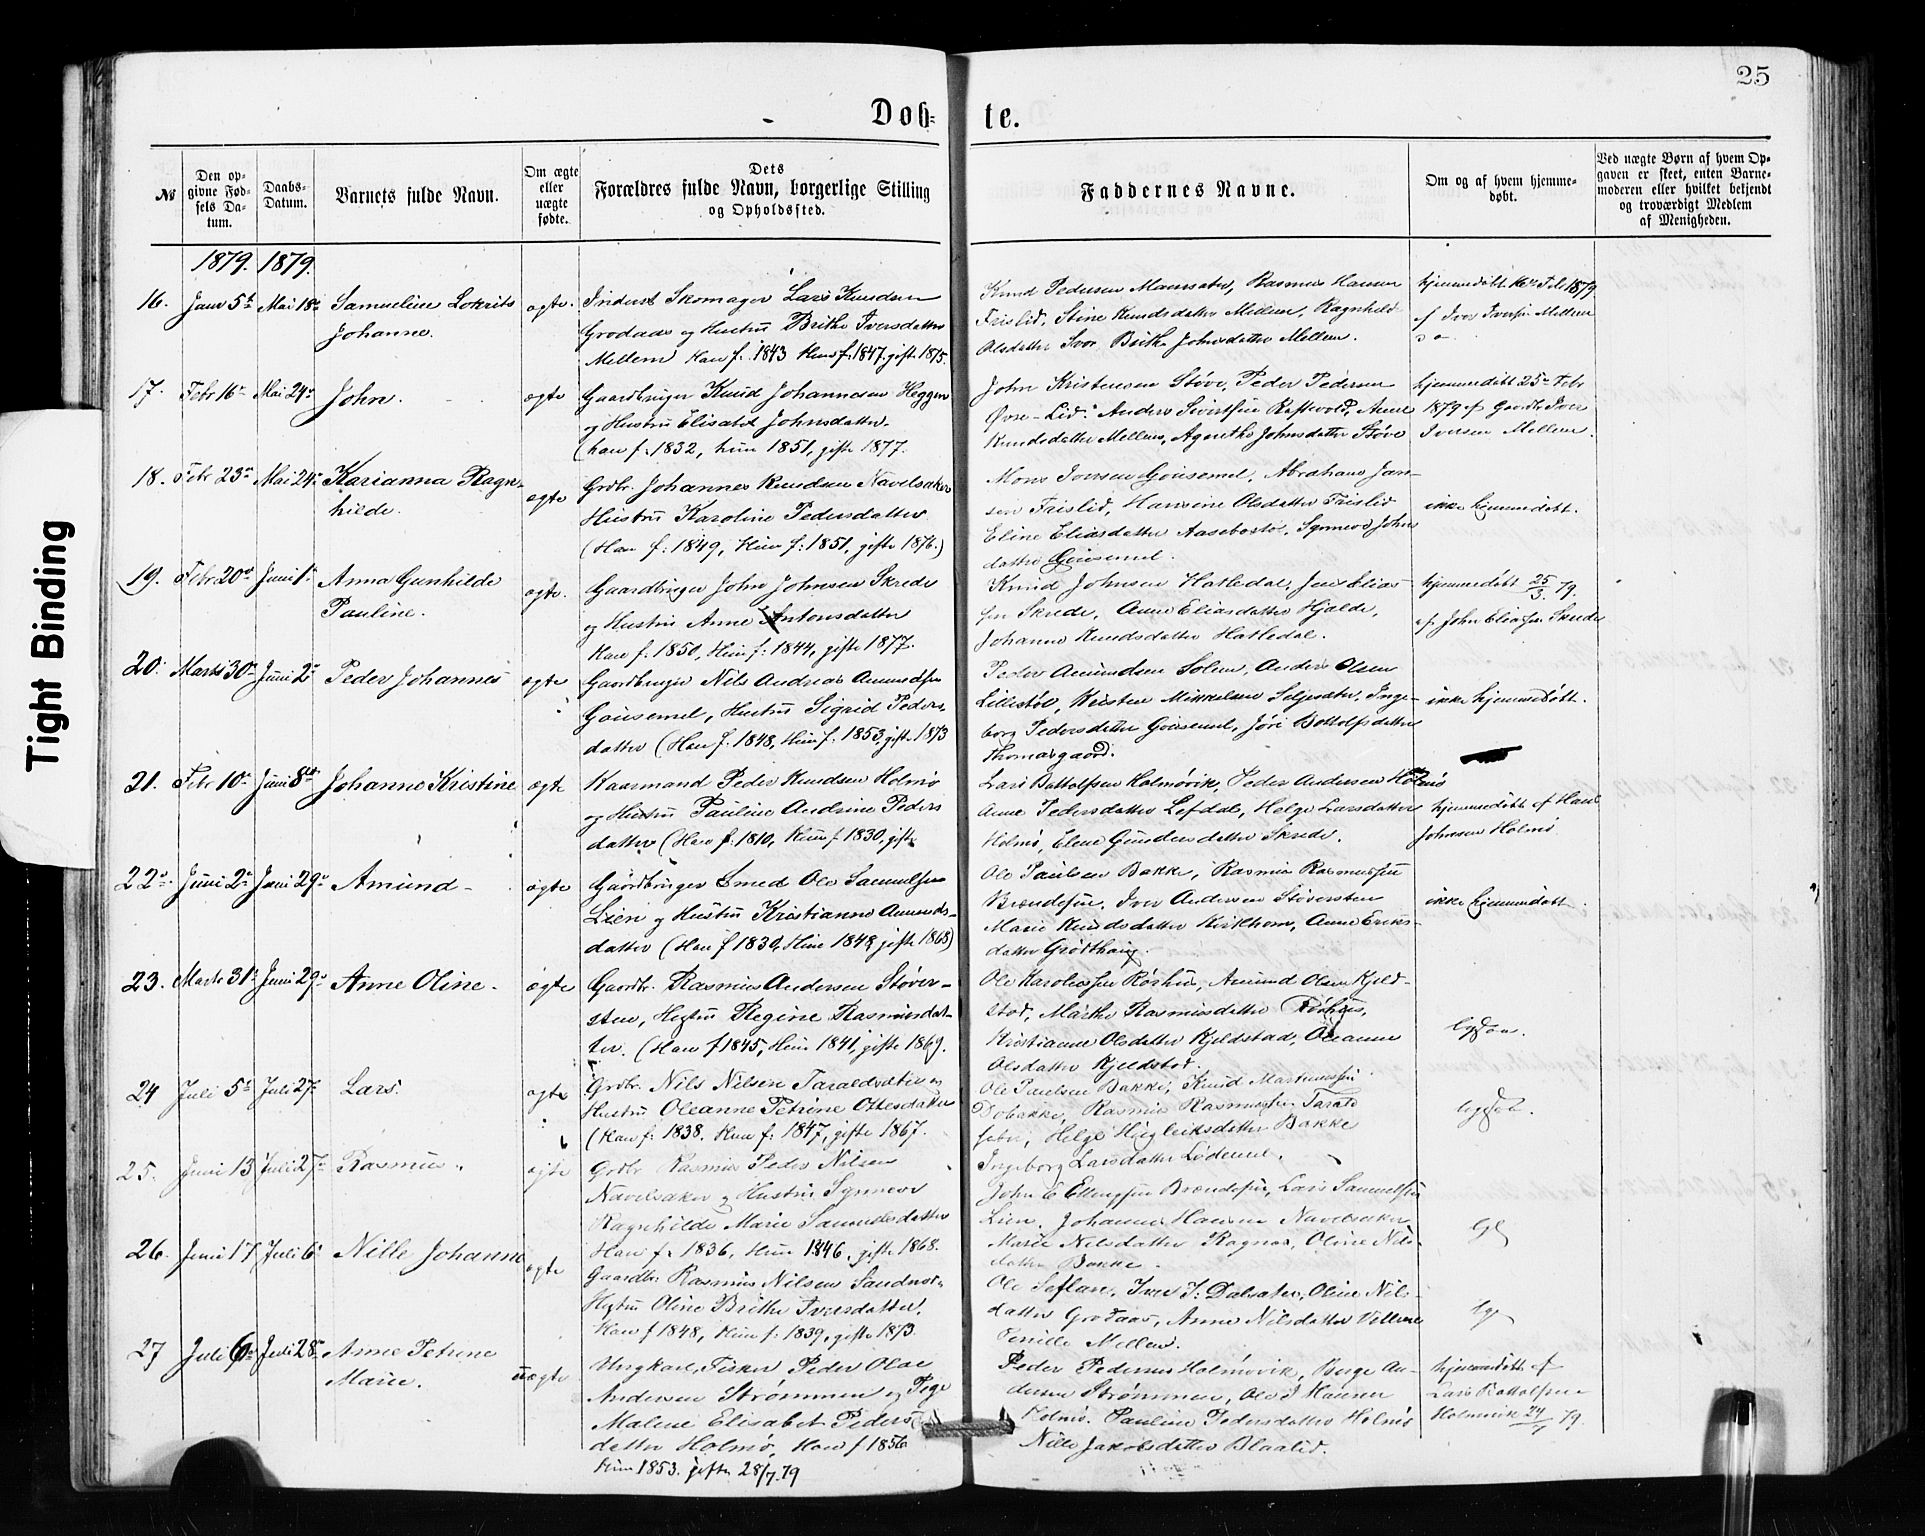 25
Døb-
te.
№
Den op-
givne Fød-
sels Da-
tum.
Daabs-
Datum.
Barnets fulde Navn.
Om ægte
eller
uægte
fødte.
Dets
Forældres fulde Navn, borgerlige Stilling
og Opholdssted.
Faddernes Navne.
Om og af hvem hjemme-
døbt.
Ved uægte Børn af hvem Op-
gaven er skeet, enten Barne-
moderen eller hvilket bekjendt
og troværdigt Medlem
af Menigheden.
1879. 1879.
16. Janr 5te Mai 18de Samueline Lokrits
Johanne.
ægte.
Inderst Skomager Lars Knudsen
Grodaas og Hustru Brithe Iversdatter
Mellem Han f. 1843 Hun f. 1847. gifte 1875.
Knud Pedersen Maursæter, Rasmus Hansen
Frislid, Stine Knudsdatter Mellem, Ragnhild
Olsdatter Svor, Brithe Johnsdatter Mellem.
hjemmedøbt 16de Feb 1879
af Iver Iversen Mellem
17. Febr 16de Mai 24de John.
ægte
Gaardbruger Knud Johannesen Heggen
og Hustru Elisabet Johnsdatter.
(han f. 1832, hun 1851, gifte 1877.
John Kristensen Støve, Peder Pedersen
Øvre-Lid. Anders Sivertsen Raftevold, Anne
Knudsdatter Mellem, Agnethe Johnsdatter Støve
hjemmedøbt 25de Febr
1879 af Gaardbr Iver
Iversen Mellem.
18. Febr 23de Mai 24de Karianna Ragn-
hilde.
ægte
Grdbr. Johannes Knudsen Navelsaker
Hustru Karoline Pedersdatter
(Han f: 1849, Hun f: 1851, gifte 1876.)
Mons Iversen Gousemel, Abraham Jan-
sen Frislid, Hansine Olsdatter Frislid
Eline Eliasdatter Aasebostø, Synneve Johns
datter Gousemel.
ikke hjemmedøbt.
19. Febr 20de Juni 1ste Anna Gunhilde
Pauline.
ægte.
Gaardbruger John Johnsen Skrede
og Hustru Anne Antonsdatter
Han f. 1850, Hun f: 1844, gifte 1877.
Knud Johnsen Hatledal, Jens Elias-
sen Skrede, Anne Eliasdatter Hjalde,
Johanne Knudsdatter Hatledal.
hjemmedøbt 25/3 79.
af John Eliassen Skrede
20. Marts 30te Juni 2den Peder Johannes
ægte
Gaardbruger Nils Andreas Amundsen
Gousemel, Hustru Sigrid Peders-
datter (Han f. 1848, Hun f. 1853, gift. 1873
Peder Amundsen Solem, Anders Olsen
Lillestøl, Kristen Mikkelsen Seljesæter, Inge-
borg Pedersdatter Gousemel, Jøri Bottolfsdatter
Thomasgaard.
ikke hjemmedøbt.
21. Febr 10de Juni 8de Johanne Kristine
ægte
Kaarmand Peder Knudsen Holmø
og Hustru Pauline Andrine Peders
datter (Han f: 1810, Hun f. 1830, gifte
Lars Bottolfsen Holmøvik, Peder Andersen Holmø
Anne Pedersdatter Lofdal, Helge Larsdatter
Holmø, Elene Gundersdatter Skrede.
hjemmedøbt af Hans
Johnsen Holmø
22. Juni 2den Juni 29de Amund
ægte
Gaardbruger Smed Ole Samuelsen
Lien og Hustru Kristianne Amunds-
datter (Han f 1830, Hun 1848, gifte 1868)
Ole Paulsen Bakke, Rasmus Rasmussen
Brændefur. Iver Andersen Støversten
Marie Knudsdatter Kirkhorn, Anne Eriks-
datter Grøthaug.
ikke hjemmedøbt.
23. Marts 31te Juni 29de Anne Oline.
ægte
Gaardbr. Rasmus Andersen Støver-
sten, Hustru Regine Rasmusdat-
ter. (Han f 1845, Hun 1841, gifte 1869.
Ole Karoliussen Røshus, Amund Olsen Kjeld-
stad, Marthe Rasmusdatter Røshus,
Kristianne Olsdatter Kjeldstad, Oleanne
Olsdatter Kjeldstad.
24 Juli 5te Juli 27. Lars.
ægte
Grdbr. Nils Nilsen Taraldsæter og
Hustru Oleanne Petrine Ottesdatter
(Han f: 1838. Hun f: 1847, gifte 1867.
Ole Paulsen Bakke, Knud Martinussen
Dobakke, Rasmus Rasmussen Tarald
sæter, Helge Hugleiksdatter Bakke
Ingeborg Larsdatter Lødemel.
25. Juni 13 Juli 27de Rasmus.
ægte
Grdbr Rasmus Peder Nilsen
Navelsaker og Hustru Synneve
Ragnhilde Marie Samuelsdatter
Han f. 1836, Hun 1846, gifte 1868.
John E Ellingsen Brændefur, Lars Samuelsen
Lien. Johannes Hansen Navelsaker,
Marie Nilsdatter Ragnos, Oline Nils-
datter Bakke.
26. Juni 17 Juli 6te Nille Johanne
ægte
Gaardbr. Rasmus Nilsen Sandnes
Hustru Oline Brithe Iversdatter.
Han f 1848, Hun f: 1839, gifte 1873.
Ole Seflan, Iver J. Dalsæter, Oline Nils-
datter Grodaas, Anne Nilsdatter
Pernille Mellem.
27 Juli 6te Juli 28de Anne Petrine
Marie.
uægte
Ungkarl, Fisker Peder Olai
Andersen Strømmen og Pige
Malene Elisabet Peders-
datter Holmø, Han f 1856
Hun 1853. gifte 28/7.79
Peder Pedersen Holmøvik, Berge An-
dersen Strømmen, Ole J Hansen
Holmø. Pauline Pedersdatter Holmø
Nille Jakobsdatter Blaalid.
hjemmedøbt af
Lars Bottolfsen
Holmøvik 24/7 79.
Tight Binding